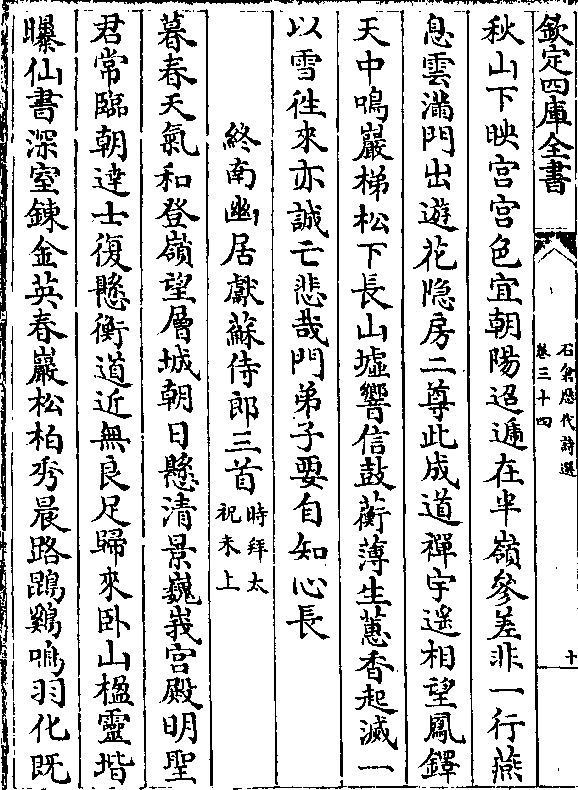 欽定四庫全書
石倉歷代詩選
卷三十四
十
秋山下映宫宫色宜朝陽迢遞在半嶺參差非一行燕
息雲滿門出遊花隐房二尊此成道禪宇遥相望鳳鐸
天中鳴巖梯松下長山墟響信鼓蘅薄生蕙香起滅一
以雪徃來亦誠亡悲哉門弟子要自知心長
終南幽居獻蘇侍郎三首時拜太祝未上
暮春天氣和登嶺望層城朝日懸清景巍峩宫殿明聖
君常臨朝達士復懸衡道近無良足歸來卧山楹靈堦
曝仙書深室鍊金英春巖松柏秀晨路鵾鷄鳴羽化既